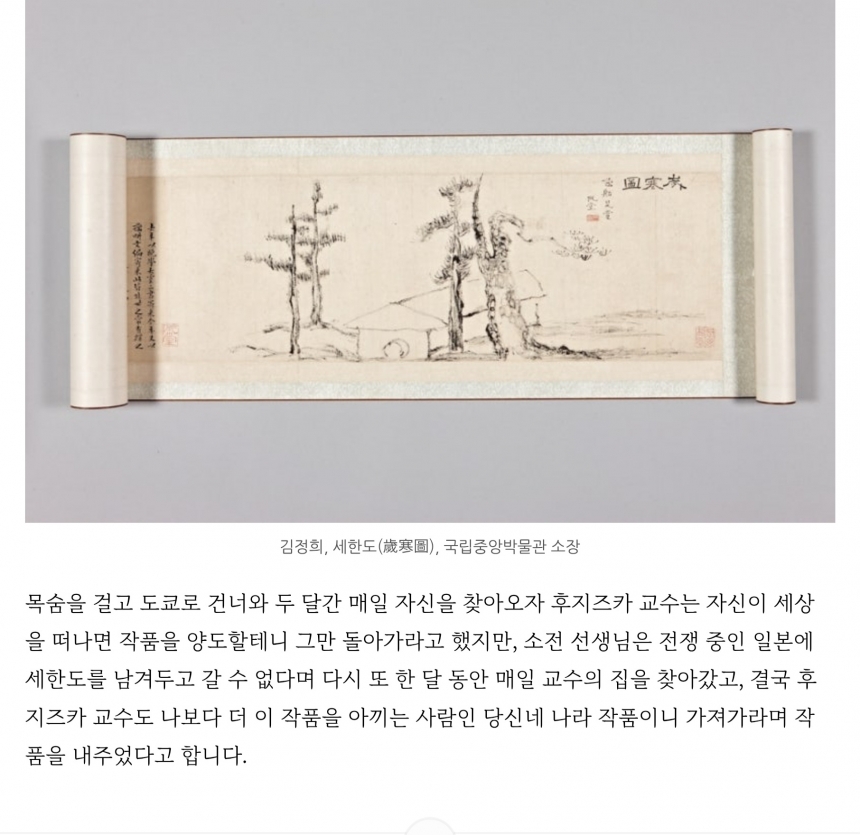 歲寒圖
김정희, 세한도(歲寒圖), 국립중앙박물관 소장
목숨을 걸고 도쿄로 건너와 두 달간 매일 자신을 찾아오자 후지즈카 교수는 자신이 세상
을 떠나면 작품을 양도할테니 그만 돌아가라고 했지만, 소전 선생님은 전쟁 중인 일본에
세한도를 남겨두고 갈 수 없다며 다시 또 한 달 동안 매일 교수의 집을 찾아갔고, 결국 후
지즈카 교수도 나보다 더 이 작품을 아끼는 사람인 당신네 나라 작품이니 가져가라며 작
품을 내주었다고 합니다.